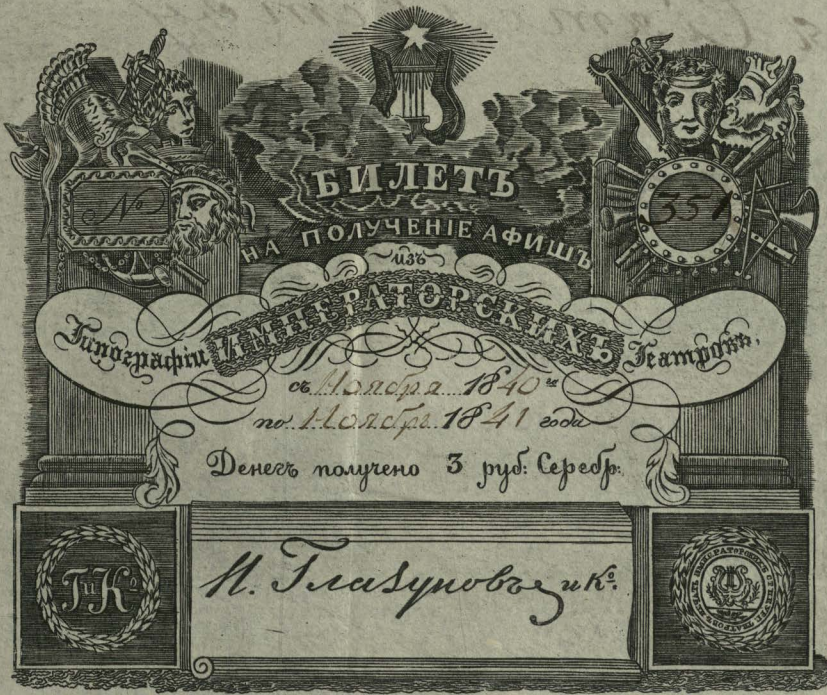 БИЛЕТЪ
НА ПОЛУЧЕНІЕ АФИШЪ
изъ
№
351
Типографіи ИМПЕРАТОРСКИХЪ Театровъ,
съ Ноября 1840 го
по Ноябрь 1841 года
Денегъ получено 3 руб: Серебр:
И. Глазуновъ и Ко.
Г и Ко